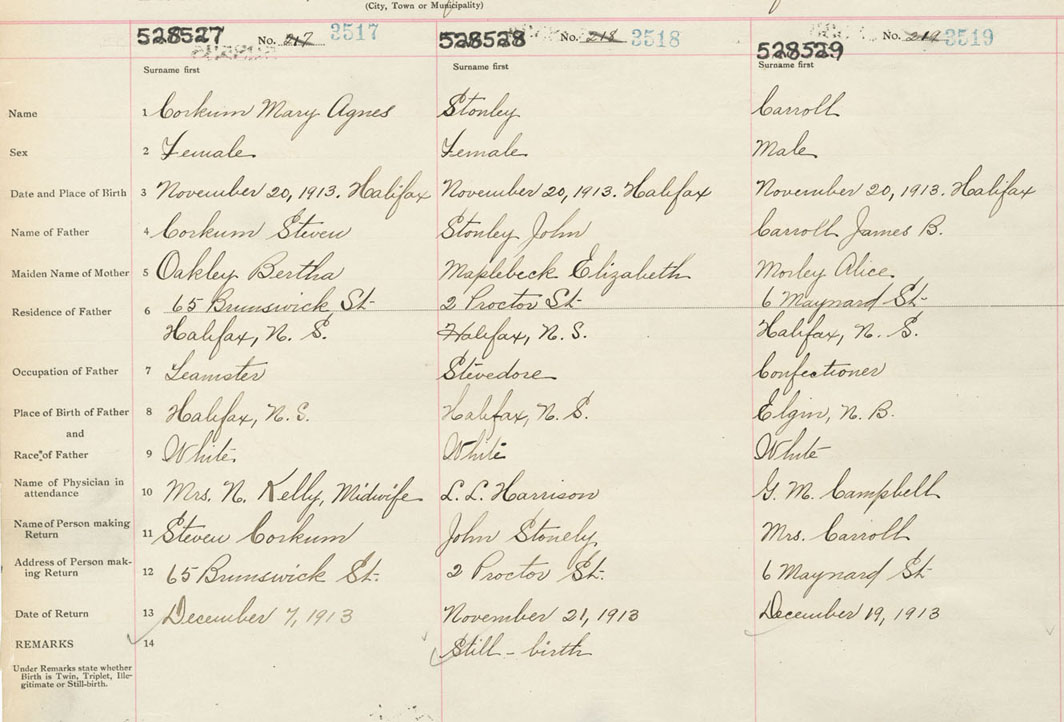 (City, Town or Municipality)
528527 No. 217 3517 528528 No. 218 3518 528529 No. 219 3519
Surname first Surname first Surname first
Name 1 Corkum Mary Agnes Stonley Carroll
Sex 2 Female Female Male
Date and Place of Birth 3 November 20, 1913. Halifax November 20, 1913. Halifax November 20, 1913. Halifax
Name of Father 4 Corkum Steven Stonley John Carroll James B.
Maiden Name of Mother 5 Oakley Bertha Maplebeck Elizabeth Morley Alice
Residence of Father 6 65 Brunswick St. 2 Proctor St. 6 Maynard St.
Halifax, N. S. Halifax, N. S. Halifax, N. S.
Occupation of Father 7 Teamster Stevedore Confectioner
Place of Birth of Father 8 Halifax, N. S. Halifax, N. S. Elgin, N. B.
and
Race of Father 9 White White White
Name of Physician in
attendance 10 Mrs. N. Kelly, Midwife L. L. Harrison G. M. Campbell
Name of Person making
Return 11 Steven Corkum John Stonely Mrs. Carroll
Address of Person mak-
ing Return 12 65 Brunswick St. 2 Proctor St. 6 Maynard St.
Date of Return 13 December 7, 1913 November 21, 1913 December 19, 1913
REMARKS 14 Still-birth
Under Remarks state whether
Birth is Twin, Triplet, Ille-
gitimate or Still-birth.